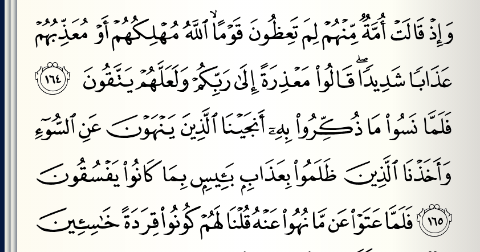 وَإِذْ قَالَتْ أُمَّةٌ مِّنْهُمْ لِمَ تَعِظُونَ قَوْمًا ۙ ٱللَّهُ مُهْلِكُهُمْ أَوْ مُعَذِّبُهُمْ
عَذَابًا شَدِيدًا ۖ قَالُوا۟ مَعْذِرَةً إِلَىٰ رَبِّكُمْ وَلَعَلَّهُمْ يَتَّقُونَ ١٦٤
فَلَمَّا نَسُوا۟ مَا ذُكِّرُوا۟ بِهِۦٓ أَنجَيْنَا ٱلَّذِينَ يَنْهَوْنَ عَنِ ٱلسُّوٓءِ
وَأَخَذْنَا ٱلَّذِينَ ظَلَمُوا۟ بِعَذَابٍۭ بَـِٔيسٍۭ بِمَا كَانُوا۟ يَفْسُقُونَ
١٦٥ فَلَمَّا عَتَوْا۟ عَن مَّا نُهُوا۟ عَنْهُ قُلْنَا لَهُمْ كُونُوا۟ قِرَدَةً خَـٰسِـِٔينَ